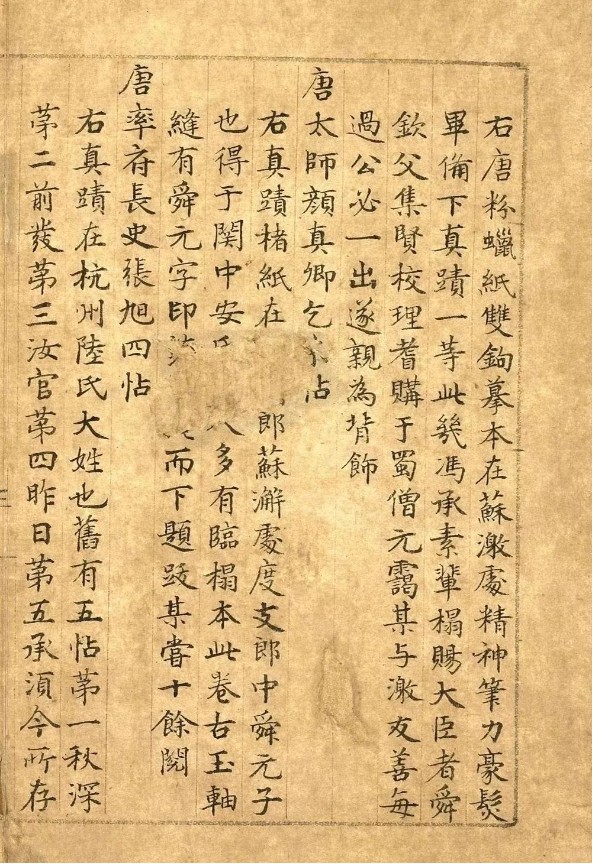 右唐粉蠟紙雙鉤摹本在蘇激處精神筆力豪髮
畢備下真蹟一等此幾馮承素輩榻賜大臣者舜
欽父集賢校理耆購于蜀僧元靄某与激友善每
過公必一出遂親為背飾
唐太師顏真卿乞帖
右真蹟楮紙在郎蘇澥處度支郎中舜元子
也得于関中安氏八多有臨榻本此卷古玉軸
縫有舜元字印而下題跋某嘗十餘閱
唐率府長史張旭四帖
右真蹟在杭州陸氏大姓也舊有五帖第一秋深
第二前發第三汝官第四昨日第五承須今所存